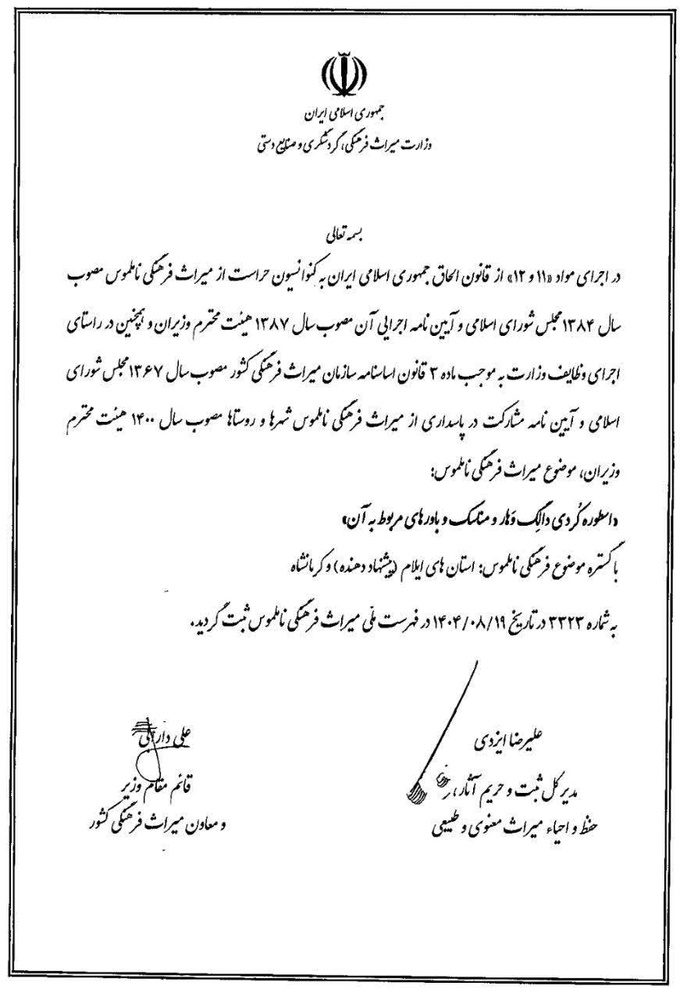 جمهوری اسلامی ایران
وزارت میراث فرهنگی، گردشگری و صنایع دستی
بسمه تعالی
در اجرای مواد «۱۱ و ۱۲» از قانون الحاق جمهوری اسلامی ایران به کنوانسیون حراست از میراث فرهنگی ناملموس مصوب
سال ۱۳۸۴ مجلس شورای اسلامی و آیین نامه اجرایی آن مصوب سال ۱۳۸۷ هیئت محترم وزیران و همچنین در راستای
اجرای وظایف وزارت به موجب ماده ۳ قانون اساسنامه سازمان میراث فرهنگی کشور مصوب سال ۱۳۶۷ مجلس شورای
اسلامی و آیین نامه مشارکت در پاسداری از میراث فرهنگی ناملموس شهرها و روستاها مصوب سال ۱۴۰۰ هیئت محترم
وزیران، موضوع میراث فرهنگی ناملموس:
«اسطوره کُردی دالِگ وَهار و مناسک و باورهای مربوط به آن»
با گستره موضوع فرهنگی ناملموس: استان های ایلام (پیشنهاد دهنده) و کرمانشاه
به شماره ۳۳۲۳ در تاریخ ۱۴۰۴/۰۸/۱۹ در فهرست ملّی میراث فرهنگی ناملموس ثبت گردید.
علیرضا ایزدی
مدیر کل ثبت و حریم آثار،
حفظ و احیاء میراث معنوی و طبیعی
علی دارابی
قائم مقام وزیر
و معاون میراث فرهنگی کشور